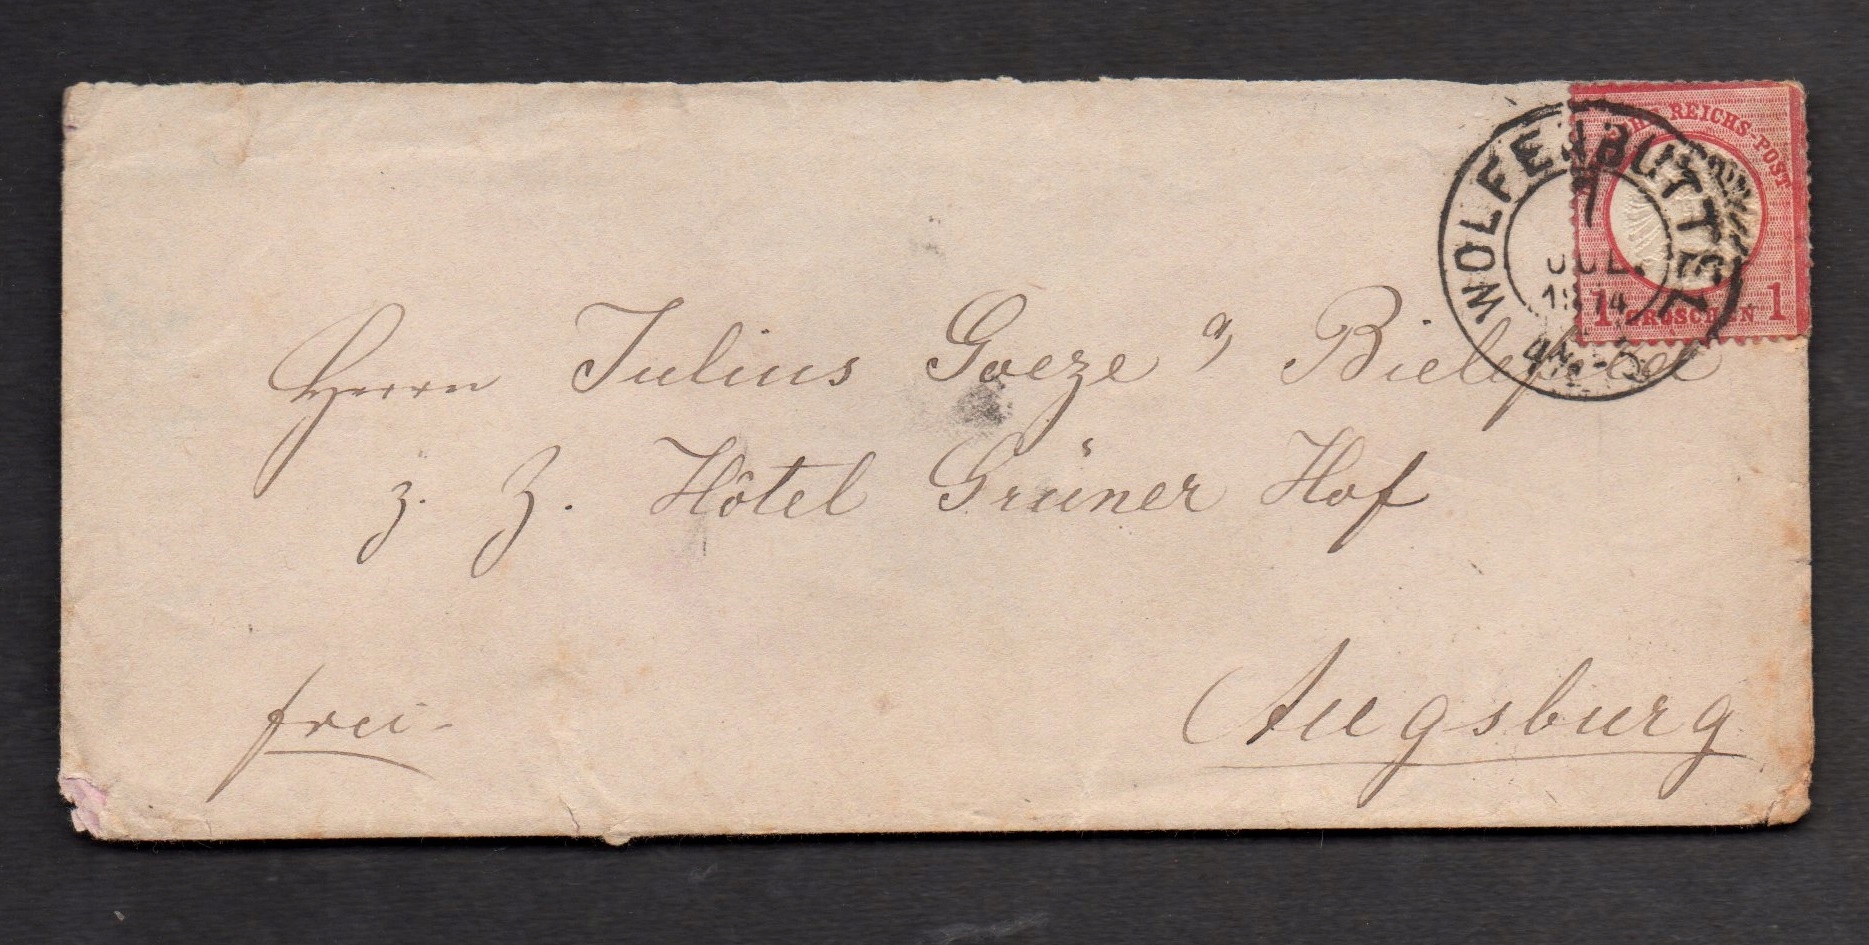 DEUTSCHE REICHS-POST
1 GROSCHEN 1
WOLFENBUTTEL
JUL.
1874
4-5
Herrn Julius Goeze a, Bielefeld
z. Z. Hôtel Grüner Hof
frei-
Augsburg